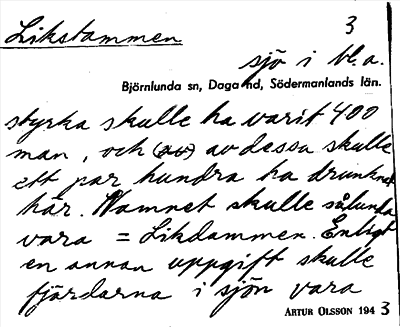 Likstammen 3
sjö i bl.a.
Björnlunda sn, Daga hd, Södermanlands län.
styrka skulle ha varit 400
man, och (av) av dessa skulle
ett par hundra ha drunknat
här. Namnet skulle sålunda
vara = Likdammen. Enligt
en annan uppgift skulle
fjärdarna i sjön vara
ARTUR OLSSON 1943